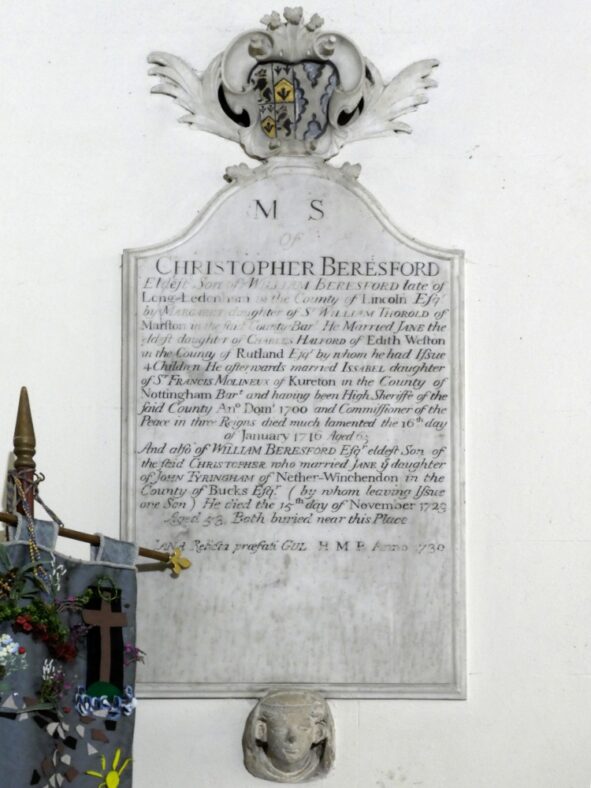 M S
OF
CHRISTOPHER BERESFORD
Eldest Son of WILLIAM BERESFORD late of
Long-Ledenham in the County of LINCOLN Esqr
by MARGARET daughter of Sr WILLIAM THOROLD of
Marston in the said County Bart He Married JANE the
eldest daughter of CHARLES HALFORD of Edith Weston
in the County of Rutland Esqr by whom he had Issue
4 Children He afterwards married ISSABEL daughter
of Sr FRANCIS MOLINEUX of Kureton in the County of
Nottingham Bart and having been High Sheriffe of the
said County Ano Domi 1700 and Commissioner of the
Peace in three Reigns died much lamented the 16th day
of January 1716 Aged 63
And also of WILLIAM BERESFORD Esqr eldest Son of
the said CHRISTOPHER who married JANE ye daughter
of JOHN TYRINGHAM of Nether-Winchendon in the
County of Bucks Esqr (by whom leaving Issue
one Son) He died the 15th day of November 1723
Aged 33 Both buried near this Place
JANA Relicta præfati GUL H M P Anno 1730